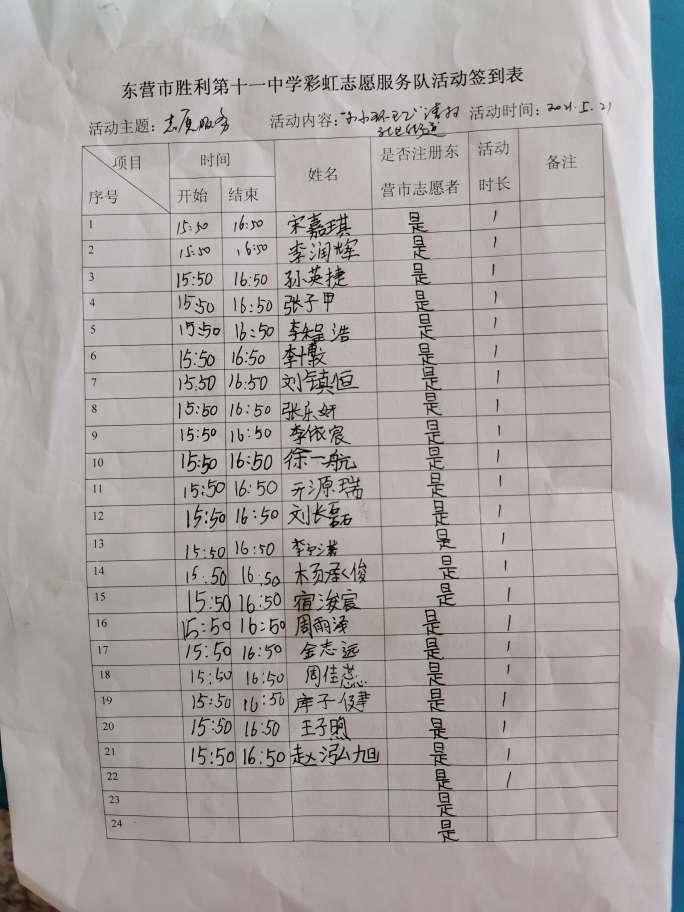 东营市胜利第十一中学彩虹志愿服务队活动签到表
活动主题：志愿服务 活动内容："小小环卫"清扫 活动时间：2021.5.21
项目 时间 姓名 是否注册东营市志愿者 活动时长 备注
序号 开始 结束
1 15:50 16:50 宋嘉琪 是 1
2 15:50 16:50 李润辉 是 1
3 15:50 16:50 孙英捷 是 1
4 15:50 16:50 张子甲 是 1
5 15:50 16:50 李程浩 是 1
6 15:50 16:50 李博毅 是 1
7 15:50 16:50 刘镇恒 是 1
8 15:50 16:50 张乐妍 是 1
9 15:50 16:50 李依宸 是 1
10 15:50 16:50 徐一航 是 1
11 15:50 16:50 亓源瑞 是 1
12 15:50 16:50 刘长磊 是 1
13 15:50 16:50 李 是 1
14 15:50 16:50 杨承俊 是 1
15 15:50 16:50 宿浚宸 是 1
16 15:50 16:50 周雨泽 是 1
17 15:50 16:50 金志远 是 1
18 15:50 16:50 周佳蕊 是 1
19 15:50 16:50 库子健 是 1
20 15:50 16:50 王子煦 是 1
21 15:50 16:50 赵泓旭 是 1
22 是 1
23 是
24 是